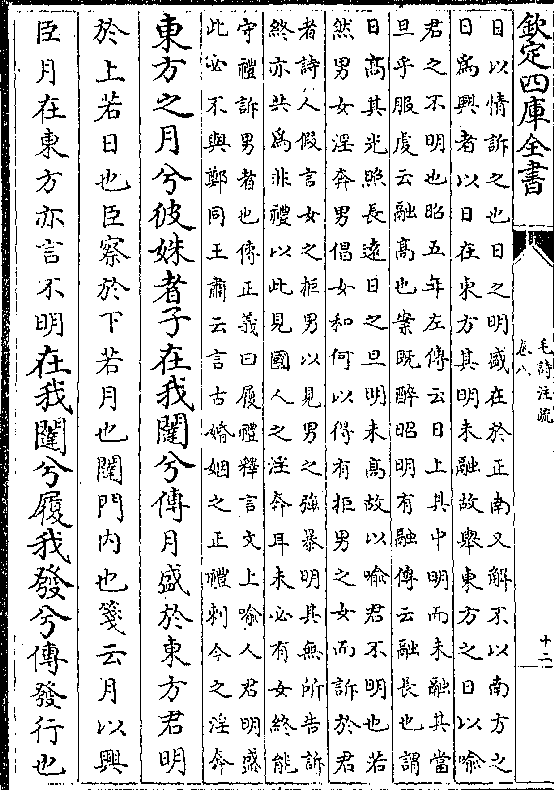 欽定四庫全書
毛詩注疏
卷八
十二
日以情訴之也日之明盛在於正南又解不以南方之
日為興者以日在東方其明未融故舉東方之日以喻
君之不明也昭五年左傳云日上其中明而未融其當
旦乎服虔云融高也案既醉昭明有融傳云融長也謂
日高其光照長遠日之旦明未高故以喻君不明也若
然男女淫奔男倡女和何以得有拒男之女而訴於君
者詩人假言女之拒男以見男之強暴明其無所告訴
終亦共為非禮以此見國人之淫奔耳未必有女終能
守禮訴男者也傳正義曰履禮釋言文上喻人君明盛
此必不與鄭同王肅云言古婚姻之正禮刺今之淫奔
東方之月兮彼姝者子在我闥兮傳月盛於東方君明
於上若日也臣察於下若月也闥門內也箋云月以興
臣月在東方亦言不明在我闥兮履我發兮傳發行也